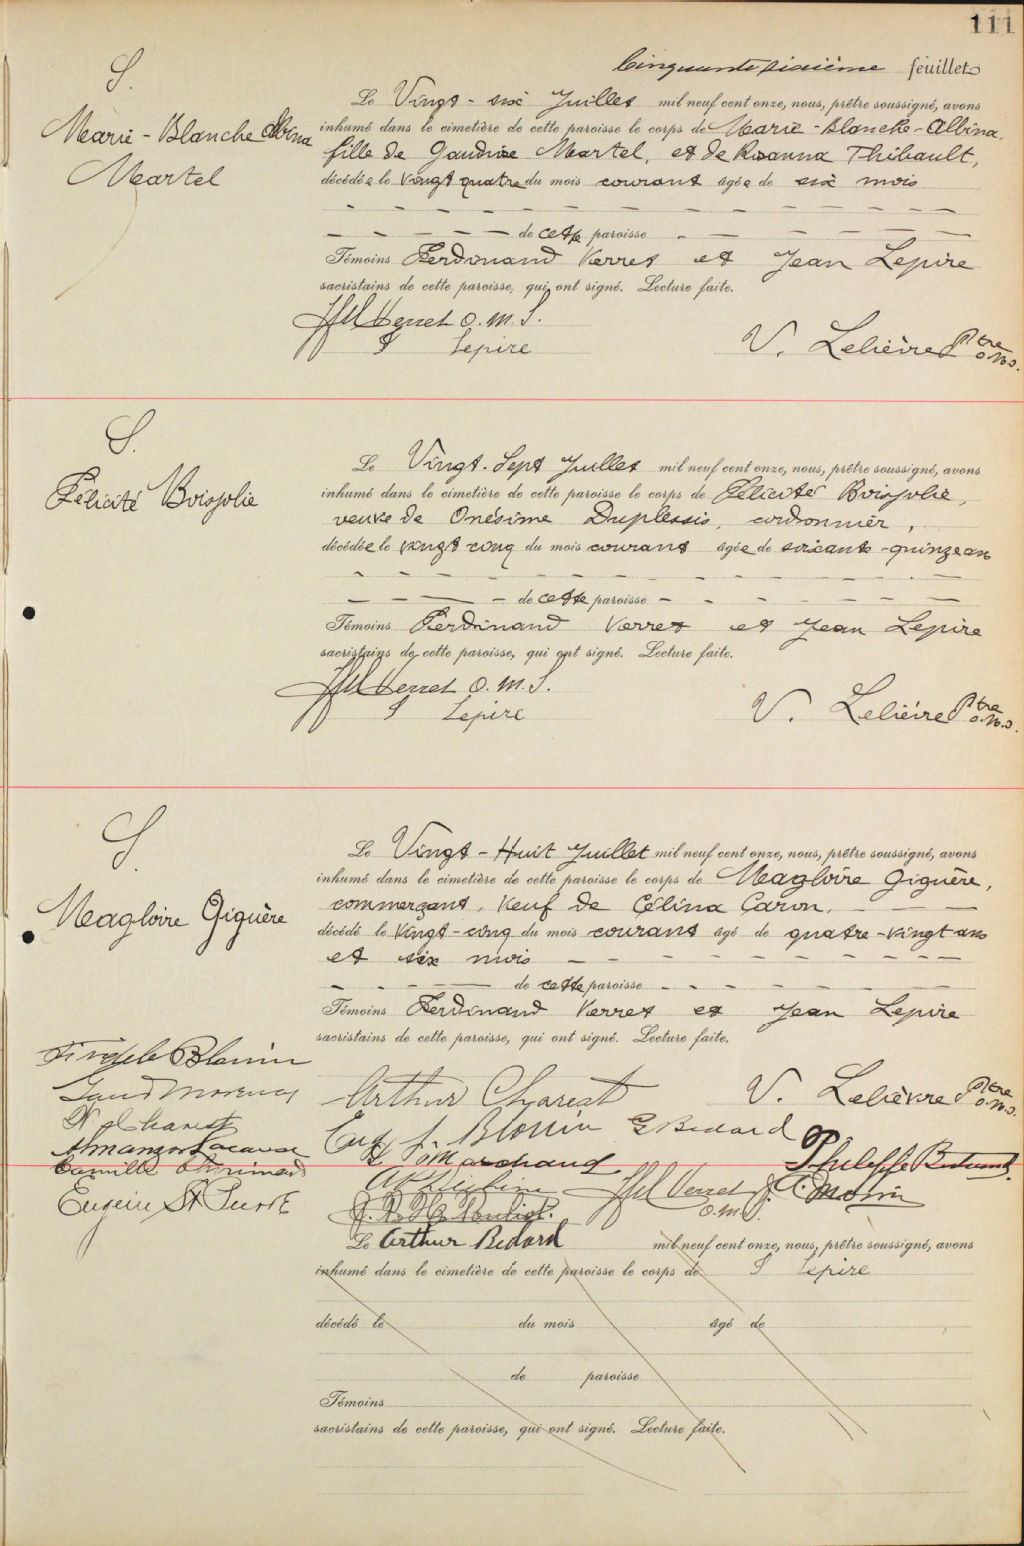 111
Cinquante sixième feuillet
S.
Marie-Blanche Albina
Martel
Le Vingt-six Juillet mil neuf cent onze, nous, prêtre soussigné, avons
inhumé dans le cimetière de cette paroisse le corps de Marie-Blanche-Albina,
fille de Martel, et de Rosanna Thibault,
décédée le vingt quatre du mois courant âgée de six mois
de cette paroisse
Témoins Ferdinand Verret et Jean Lepire
sacristains de cette paroisse, qui ont signé. Lecture faite.
Verret O.M.I.
J Lepire
V. Lelièvre Ptre
o.m.i.
S.
Félicité Boisjolie
Le Vingt-Sept Juillet mil neuf cent onze, nous, prêtre soussigné, avons
inhumé dans le cimetière de cette paroisse le corps de Félicité Boisjolie,
veuve de Onésime Duplessis, cordonnier,
décédée le vingt cinq du mois courant âgée de soixante-quinze ans
de cette paroisse
Témoins Ferdinand Verret et Jean Lepire
sacristains de cette paroisse, qui ont signé. Lecture faite.
Verret O.M.I.
J Lepire
V. Lelièvre Ptre
o.m.i.
S.
Magloire Giguère
Le Vingt-Huit Juillet mil neuf cent onze, nous, prêtre soussigné, avons
inhumé dans le cimetière de cette paroisse le corps de Magloire Giguère,
commerçant, veuf de Célina Caron,
décédé le vingt-cinq du mois courant âgé de quatre-vingt ans
et six mois
de cette paroisse
Témoins Ferdinand Verret et Jean Lepire
sacristains de cette paroisse, qui ont signé. Lecture faite.
Blouin
Arthur Charest
V. Lelièvre Ptre
o.m.i.
Charest
Eug J. Blouin
Bedard
Camille
Marchand
Eugène St Pierre
Verret
O.M.I.
Morin
Le Arthur Bedard mil neuf cent onze, nous, prêtre soussigné, avons
inhumé dans le cimetière de cette paroisse le corps de J Lepire
décédé le du mois âgé de
de paroisse
Témoins
sacristains de cette paroisse, qui ont signé. Lecture faite.